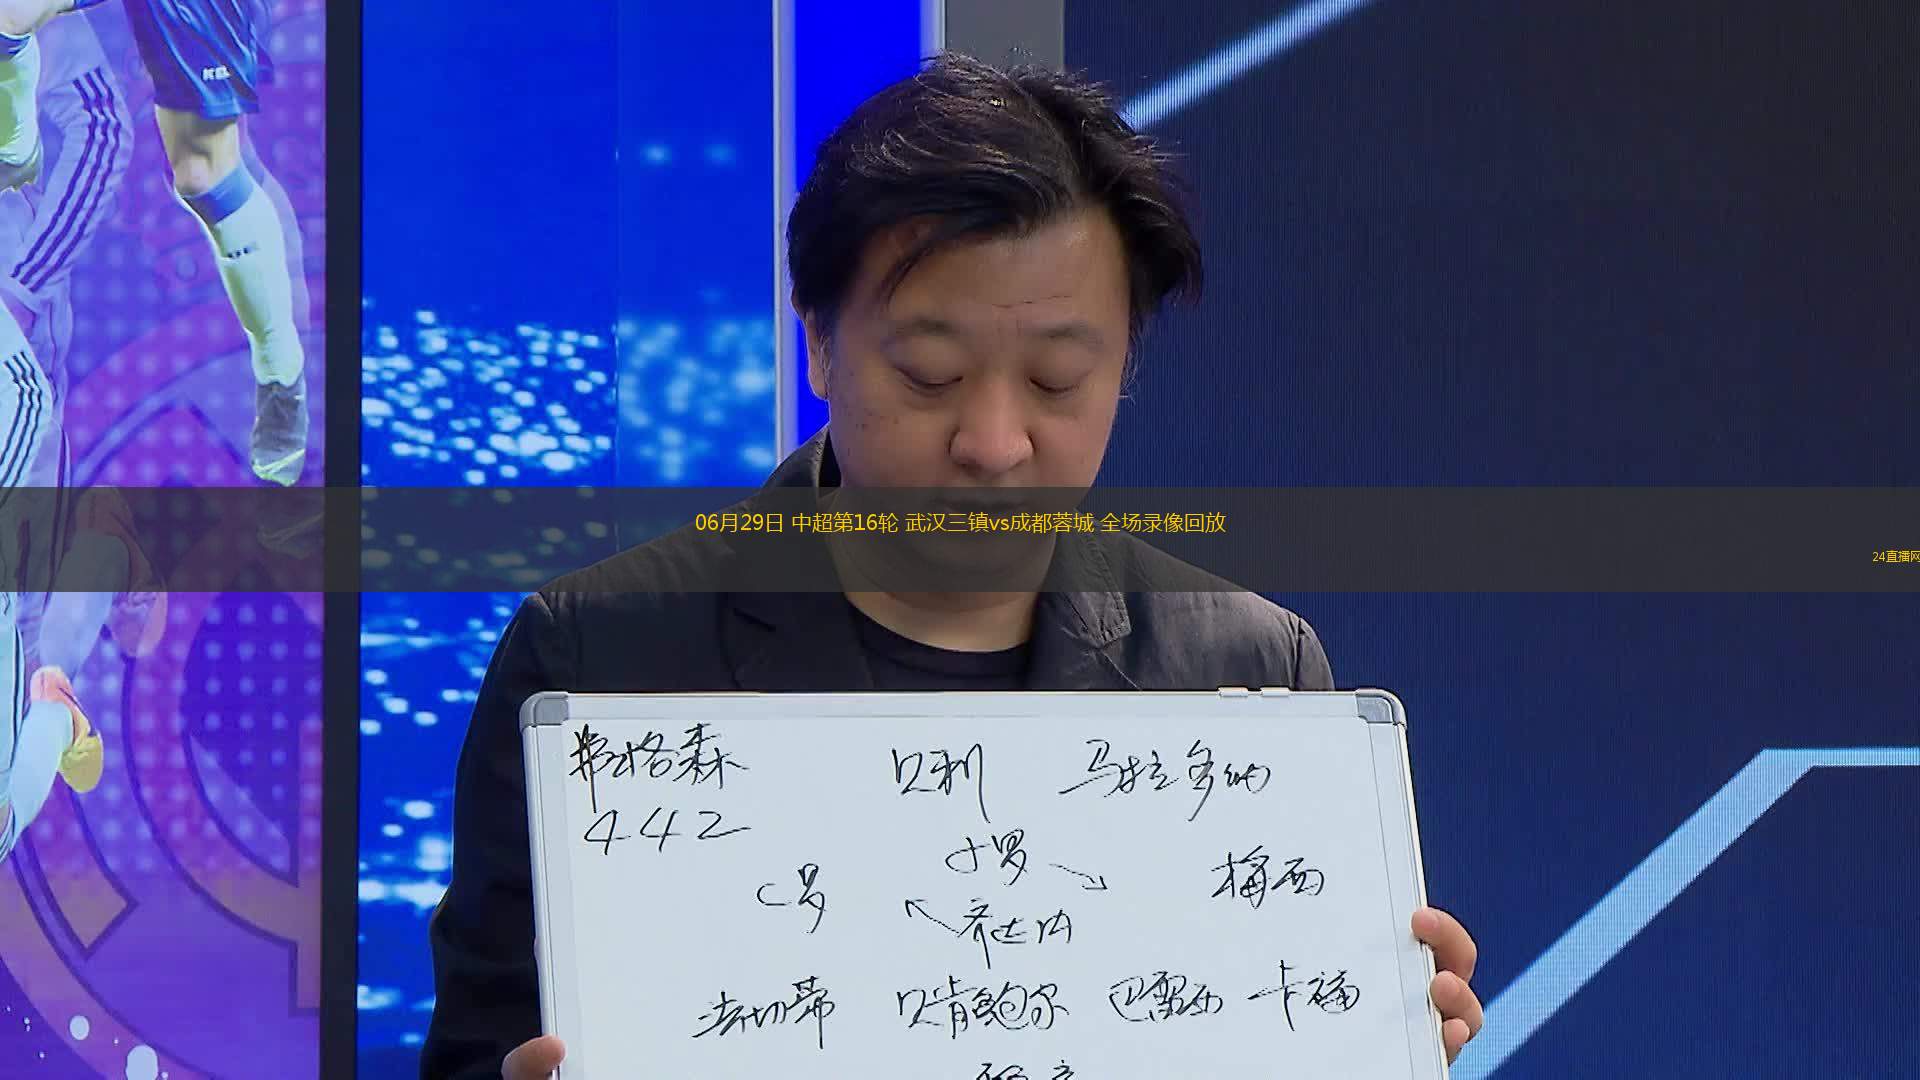 06月29日 中超第16轮 武汉三镇vs成都蓉城 全场录像回放
24直播网
弗格森 贝利 马拉多纳
442
小罗
C罗 梅西
齐达内
法切蒂 贝肯鲍尔 巴雷西 卡福